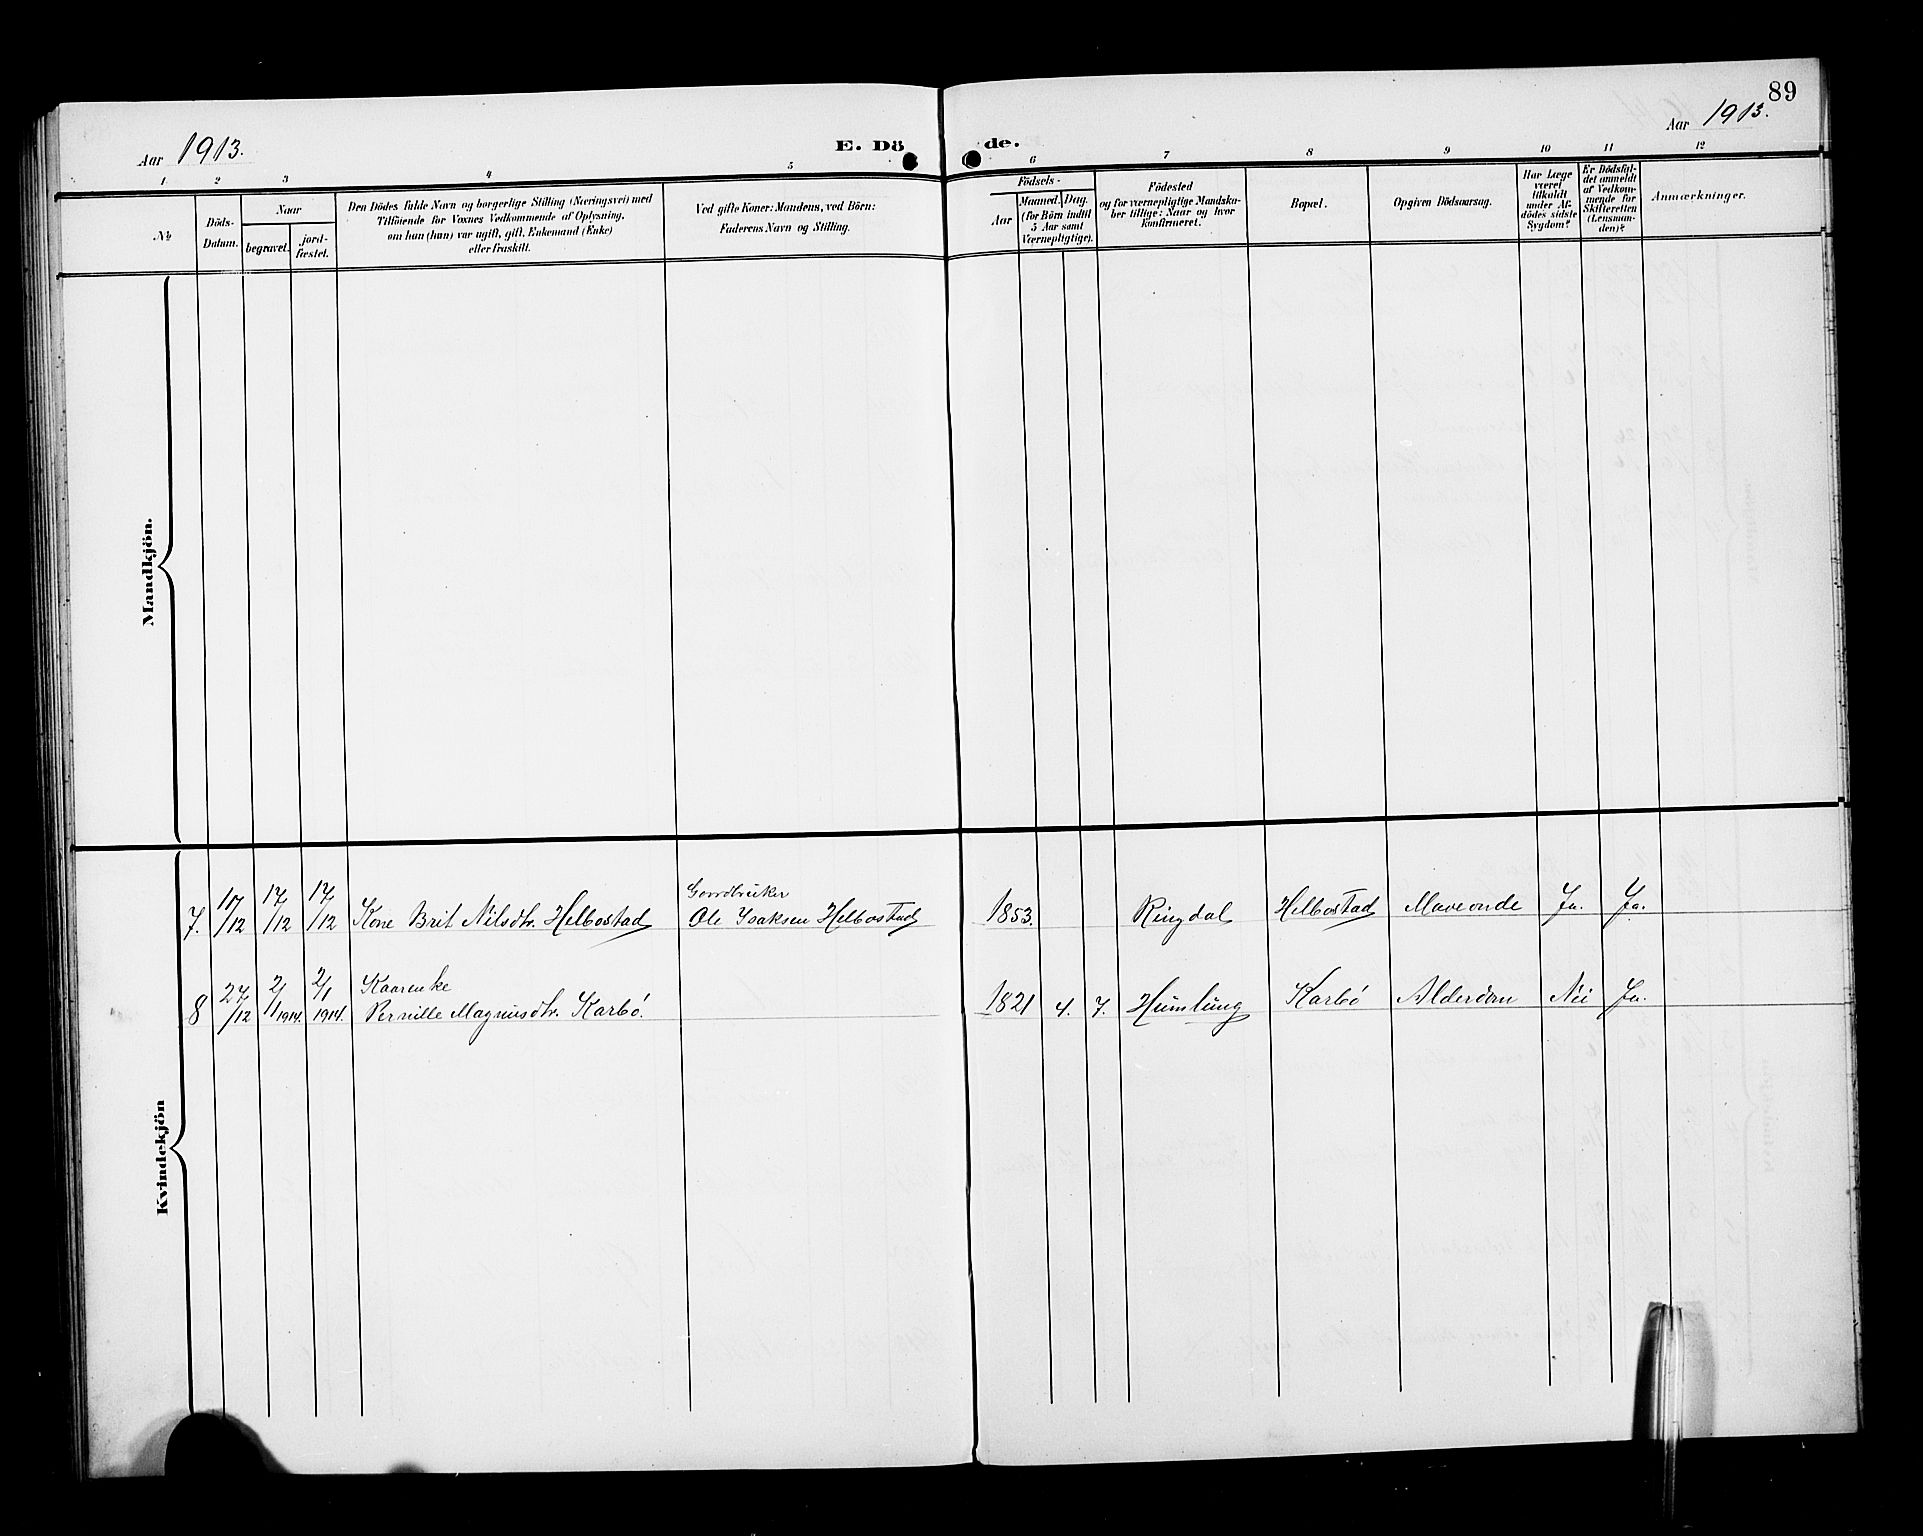 89
Aar 1913.
E. Dö
de.
Aar 1913.
1 2 3 4 5 6 7 8 9 10 11 12
№
Döds-
Datum.
Naar
begravet.
jord-
fæstet.
Den Dödes fulde Navn og borgerlige Stilling (Næringsvei) med
Tilföiende for Voxnes Vedkommende af Oplysning,
om han (hun) var ugift, gift, Enkemand (Enke)
eller fraskilt.
Ved gifte Koner: Mandens, ved Börn:
Faderens Navn og Stilling.
Födsels-
Aar
Maaned.
Dag.
(for Börn indtil
5 Aar samt
Værnepligtige).
Födested
og for værnepligtige Mandska-
ber tillige: Naar og hvor
konfirmeret.
Bopæl.
Opgiven Dödsaarsag.
Har Læge
været
tilkaldt
under Af-
dödes sidste
Sygdom?
Er Dödsfal-
det anmeldt
af Vedkom-
mende for
Skifteretten
(Lensman-
den)?
Anmærkninger.
Mandkjön.
Kvindekjön
Gaardbruker
7. 10/12 17/12 17/12 Kone Brit Nilsdtr. Helbostad Ole Isaksen Helbostad 1853. Ringdal Helbostad Maveonde Ja. Ja.
Kaarenke
8 27/12 2/1 1914. 2/1 1914. Pernille Magnusdtr. Karbö. 1821 4. 7. Humlung Karbö Alderdom Nei Ja.